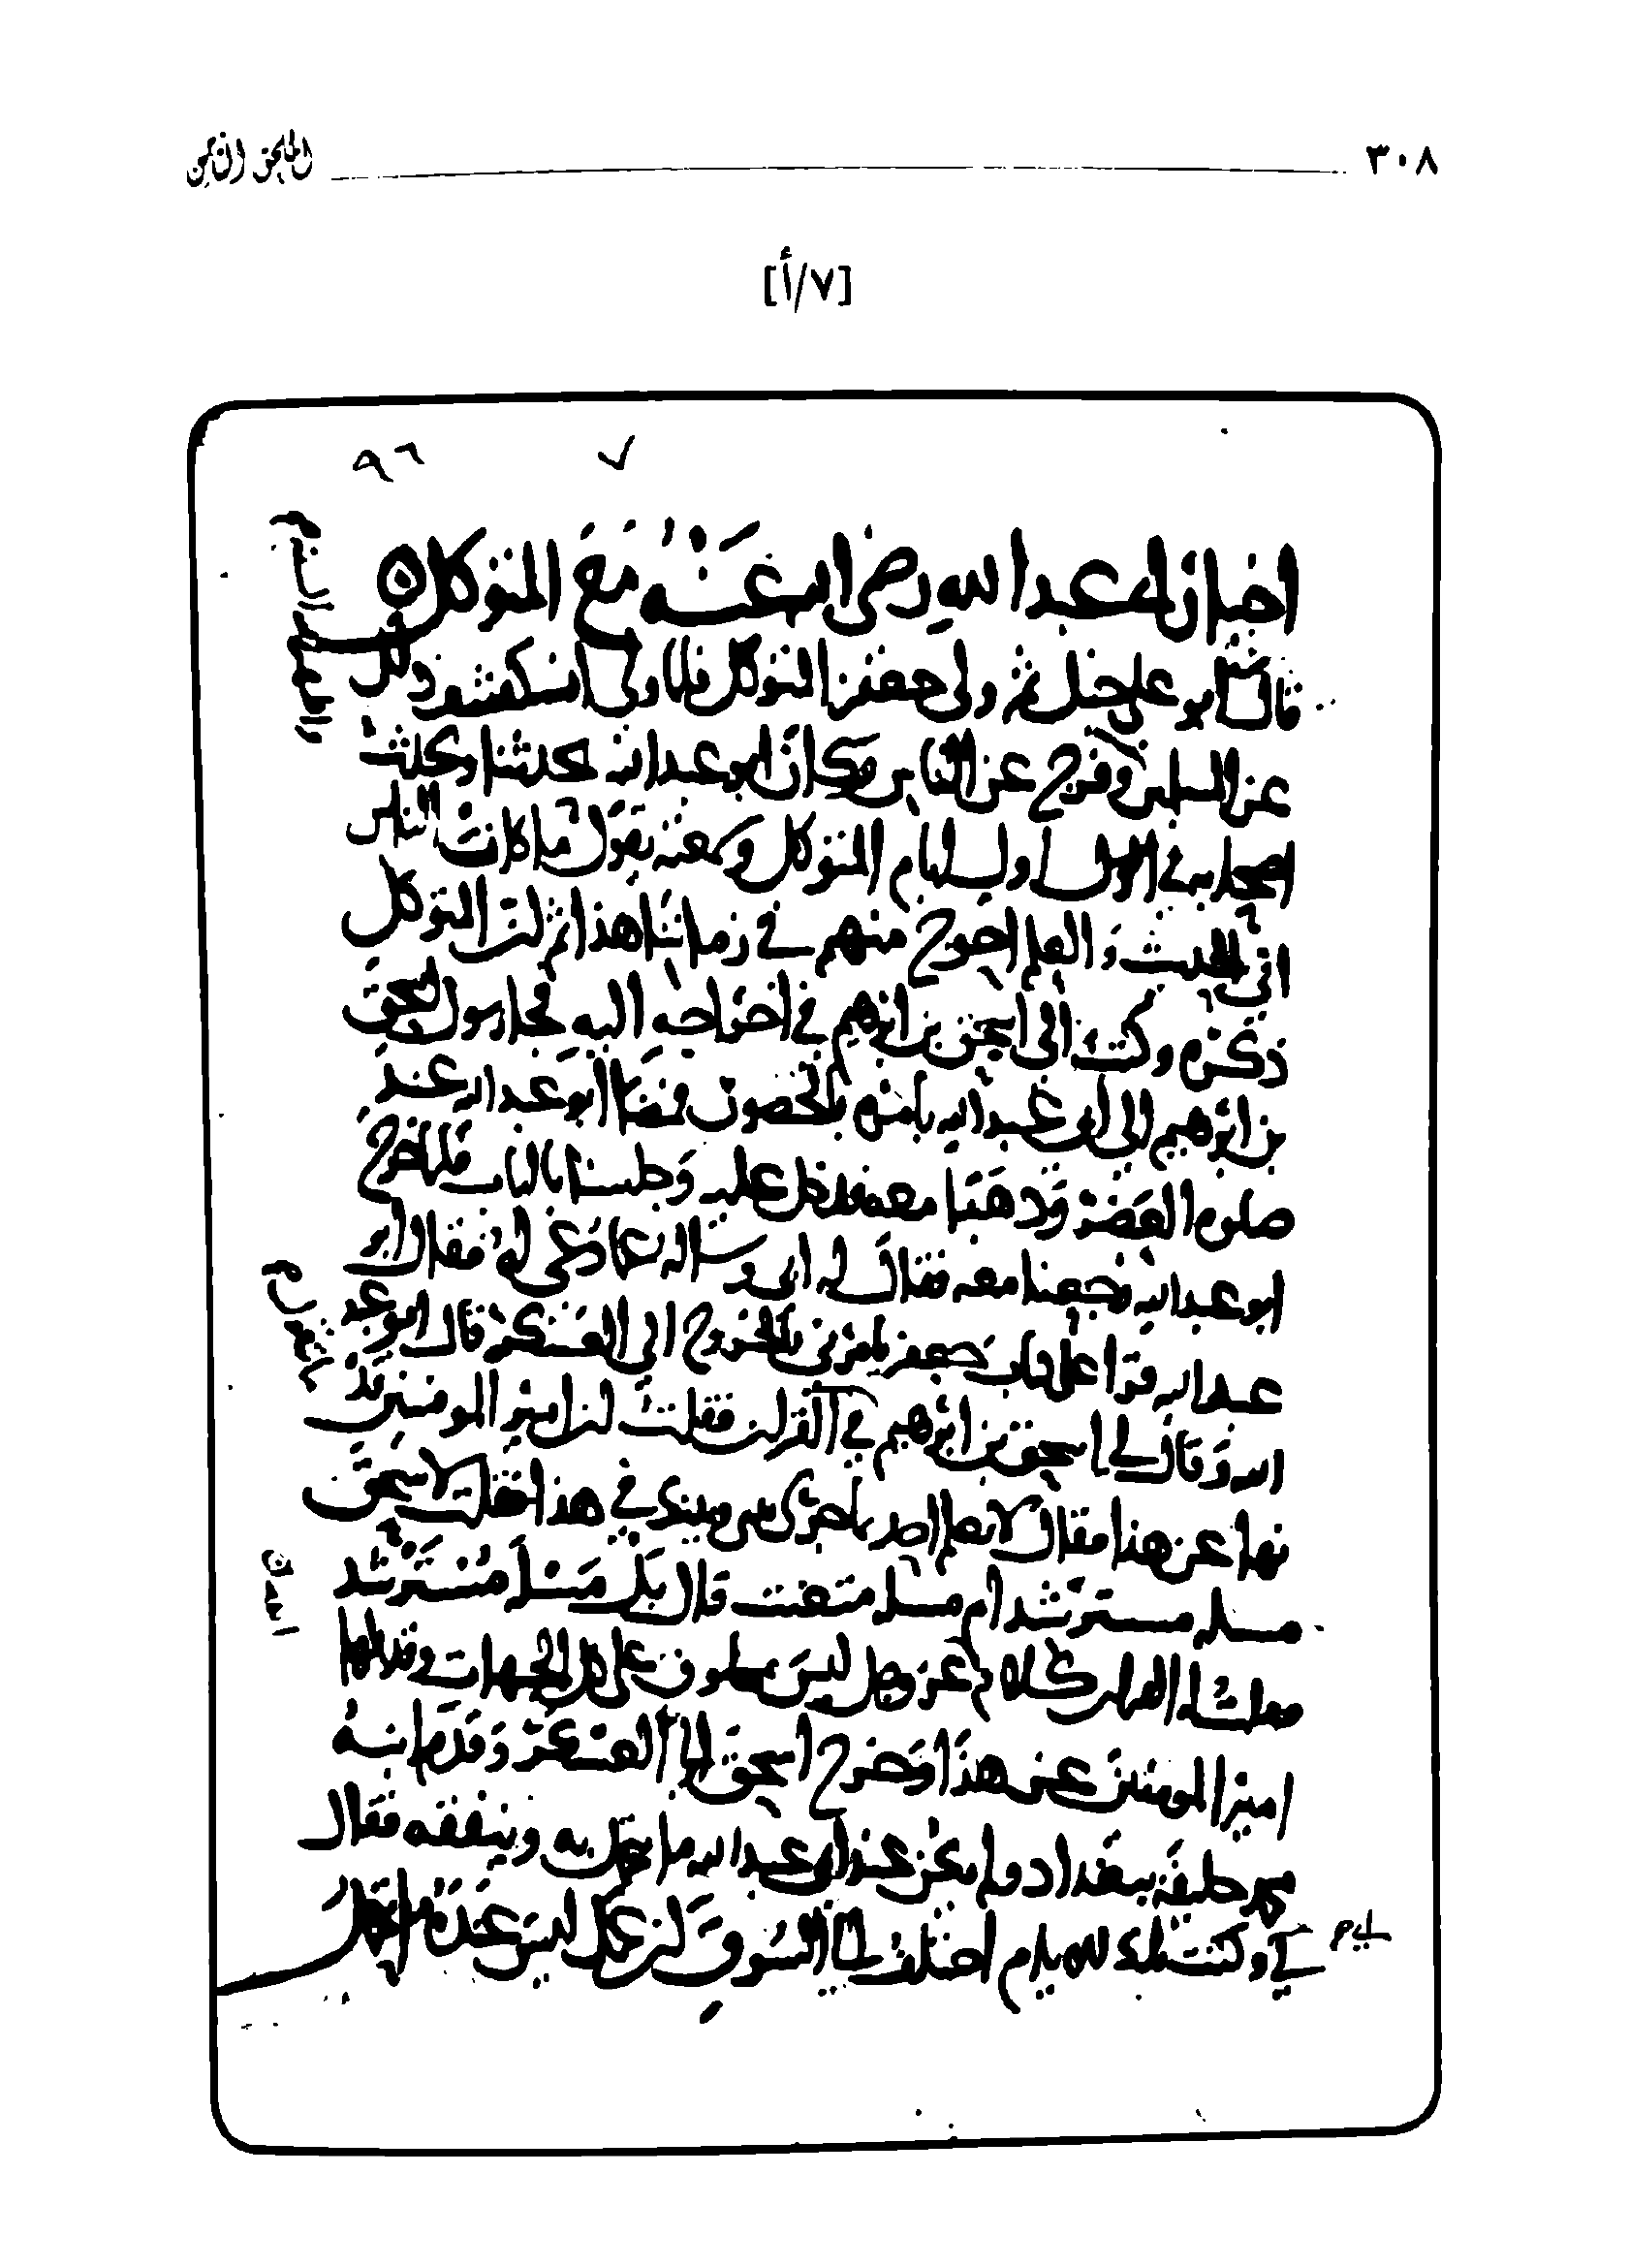 ٣٠٨
الملحق الثامن
[٧/أ]
٧ ٩٦
اخبار ابي عبد الله رضي الله عنه مع المتوكل
قال ابو علي حنبل ثم ولي جعفر المتوكل فلما ولي انكشف ذلك
عن المسلمين وفرج عن الناس وكان ابو عبد الله يحدثنا ويحدث
اصحابه في اول ايام المتوكل وسمعته يقول ما كانت الناس
الى الحديث والعلم احوج منهم في زماننا هذا ثم ان المتوكل
ذكره وكتب الى اسحق بن ابرهيم في اخراجه اليه فجا رسول اسحق
بن ابرهيم الى ابي عبد الله يامره بالحضور فمضا ابو عبد الله عند
صلوه العصر وذهبنا معه فدخل عليه وجلسنا بالباب فلما خرج
ابو عبد الله رجعنا معه فقال له ابي وساله عما دعي له فقال ابو
عبد الله قرا علي كتاب جعفر يامرني بالخروج الى العسكر قال ابو عبد
الله وقال لي اسحق بن ابرهيم في القران فقلت ان امير المومنين قد
نها عن هذا فقال لا تعلم احد ما جرى بيني وبينك في هذا فقلت لاسحق
مسله مسترشد ام مسله متعنت قال بل مسله مسترشد
فقلت له القران كلام الله عز وجل ليس بمخلوق على كل الجهات وقد نها
امير المومنين عن هذا وخرج اسحق الى العسكر وقدم ابنه
محمد خليفة ببغداد ولم يكن عند ابي عبد الله ما يتجمل به وينفقه فقال
لي وكنت